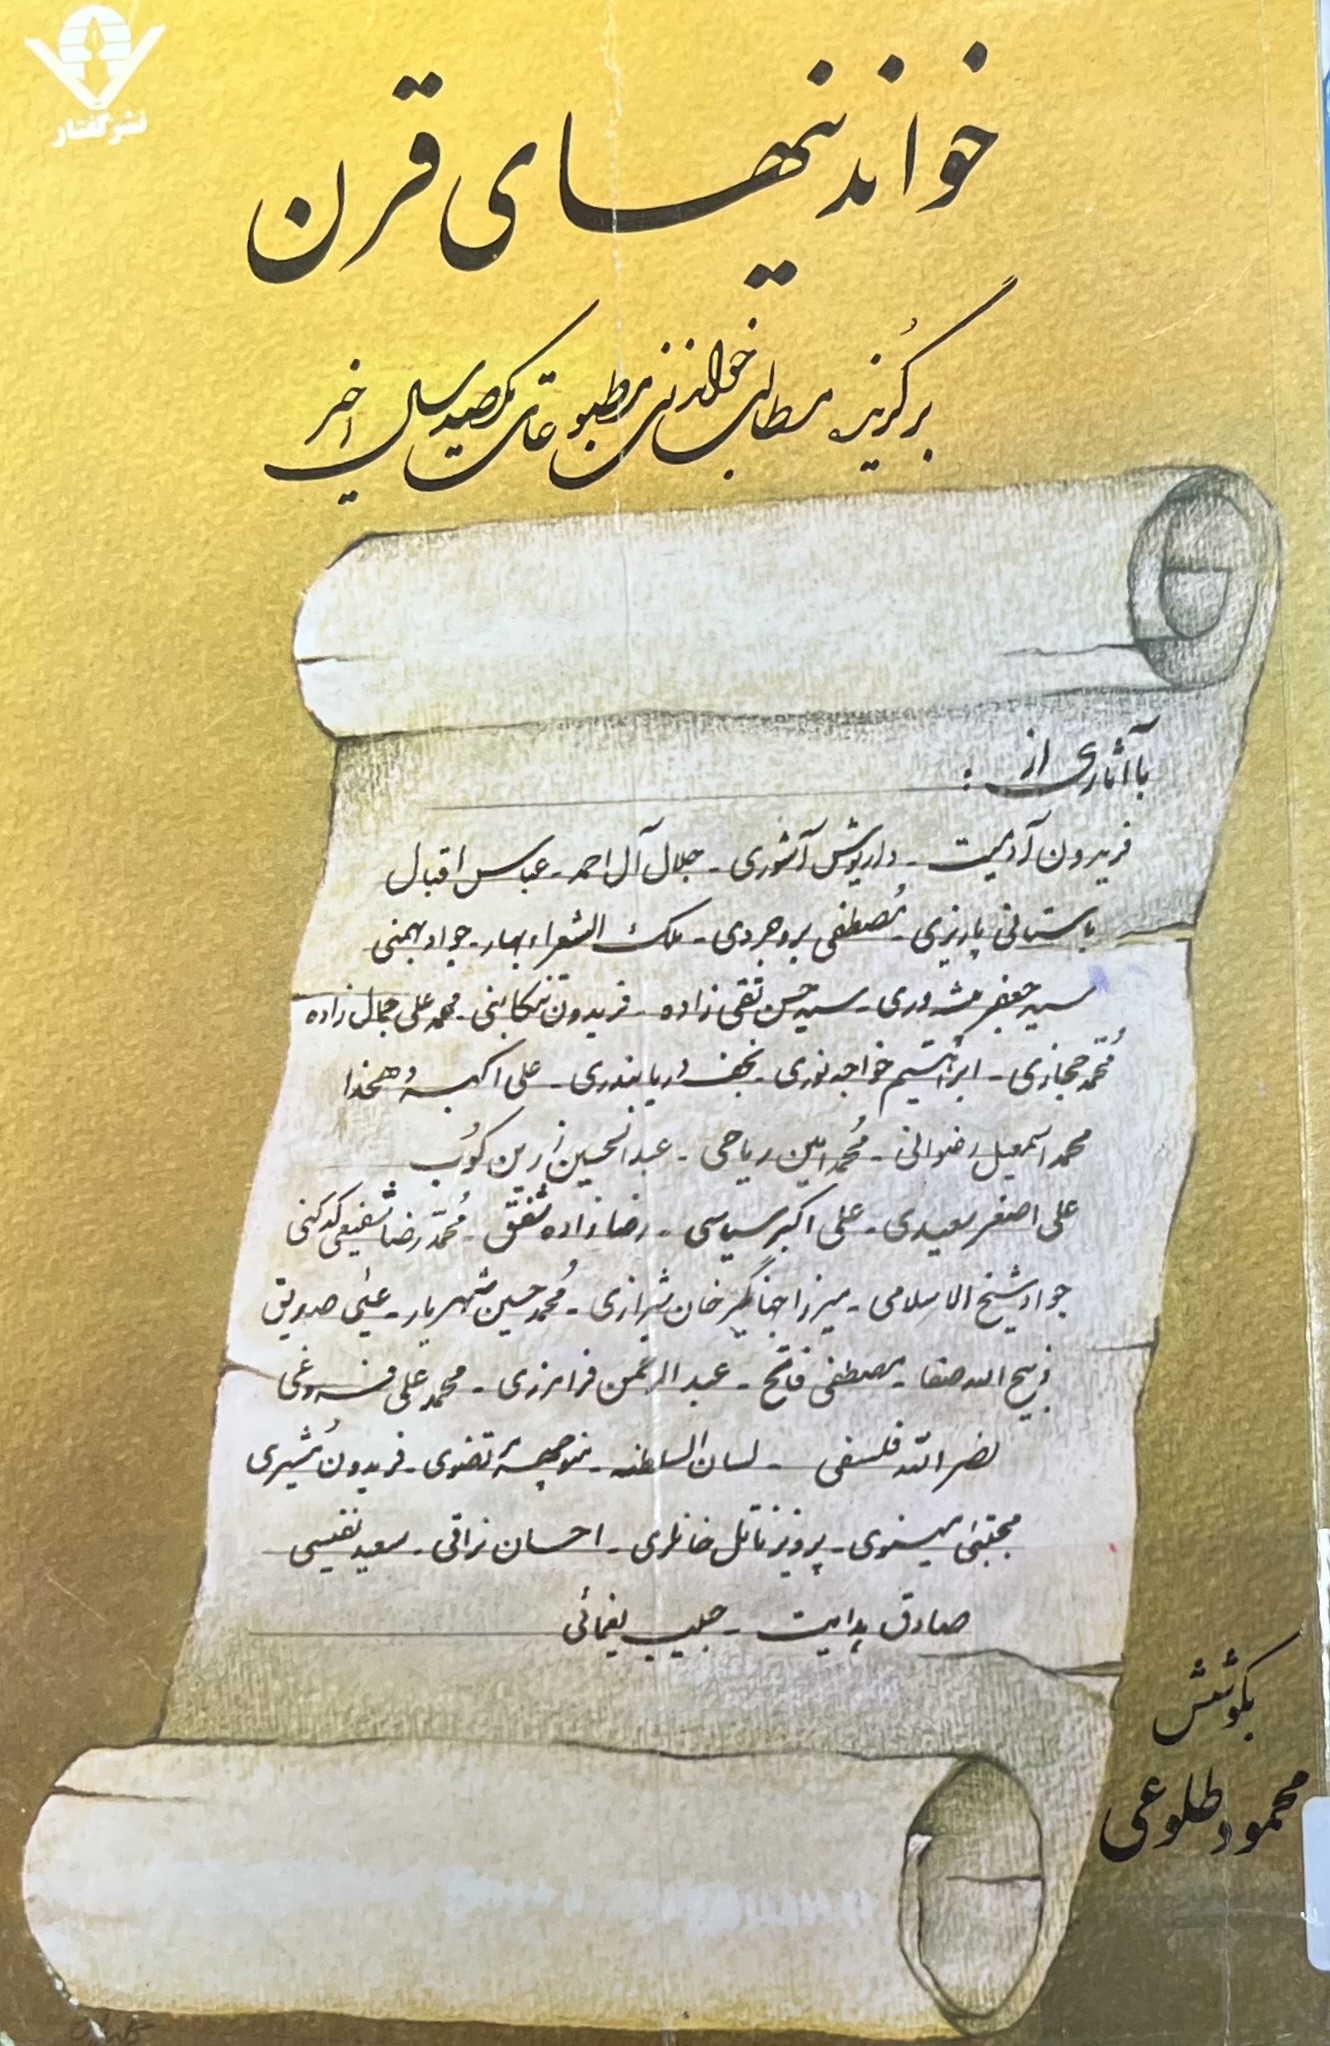 نشر گفتار
خواندنیهای قرن
برگزیده مطالب خواندنی مطبوعات یکصد سال اخیر
با آثاری از :
فریدون آدمیت - داریوش آشوری - جلال آل احمد - عباس اقبال
باستانی پاریزی - مُصطفی بروجردی - ملک الشعراء بهار - جواد بهمنی
سید جعفر پیشه وری - سید حسن تقی زاده - فریدون تنکابنی - محمد علی جمال زاده
مُحمّد حجازی - ابراهیم خواجه نوری - نجف دریابندری - علی اکبر دهخدا
محمد اسمعیل رضوانی - مُحمد امین ریاحی - عبدالحسین زرین کوُب
علی اصغر سعیدی - علی اکبر سیاسی - رضازاده شفق - مُحمّد رضا شفیعی کدکنی
جواد شیخ الاسلامی - میرزا جهانگیر خان شیرازی - مُحمد حسین شهریار - عیسٰی صدیق
ذبیح الله صفا - مصطفی فاتح - عبدالرحمن فرامرزی - محمد علی فروغی
نصرالله فلسفی - لسان السلطنه - منوچهر مرتضوی - فریدون مُشیری
مجتبی مینوی - پرویز ناتل خانلری - احسان نراقی - سعید نفیسی
صادق هدایت - حبیب یغمائی
بکوشش
محمود طلوعی